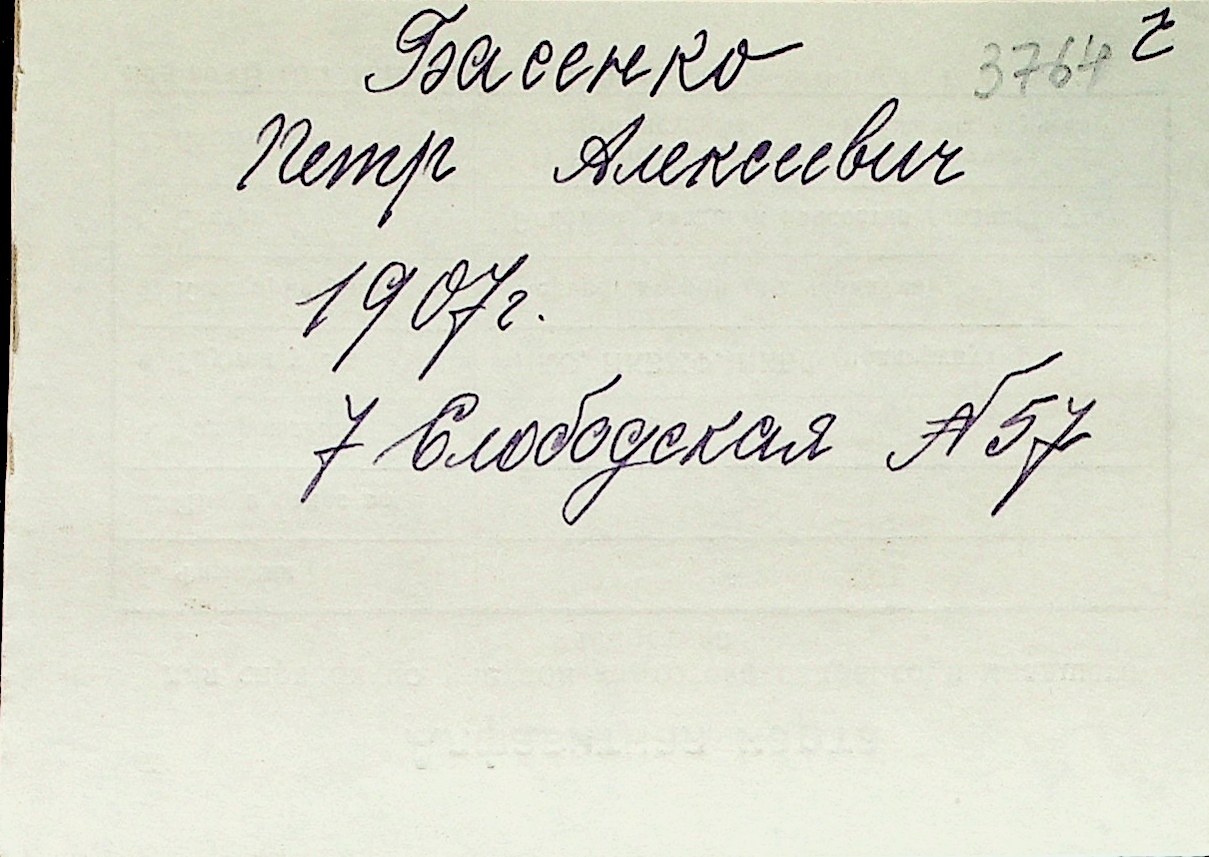 Басенко 3764 г
Петр Алексеевич
1907г.
7 Слободская №57